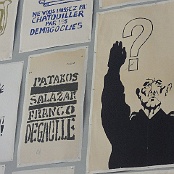 NE VOUS LAISSEZ PAS
CHATOUILLER
PAR LES
DEMAGOGUES
PATAKOS
SALAZAR
FRANCO
DEGAULLE
?